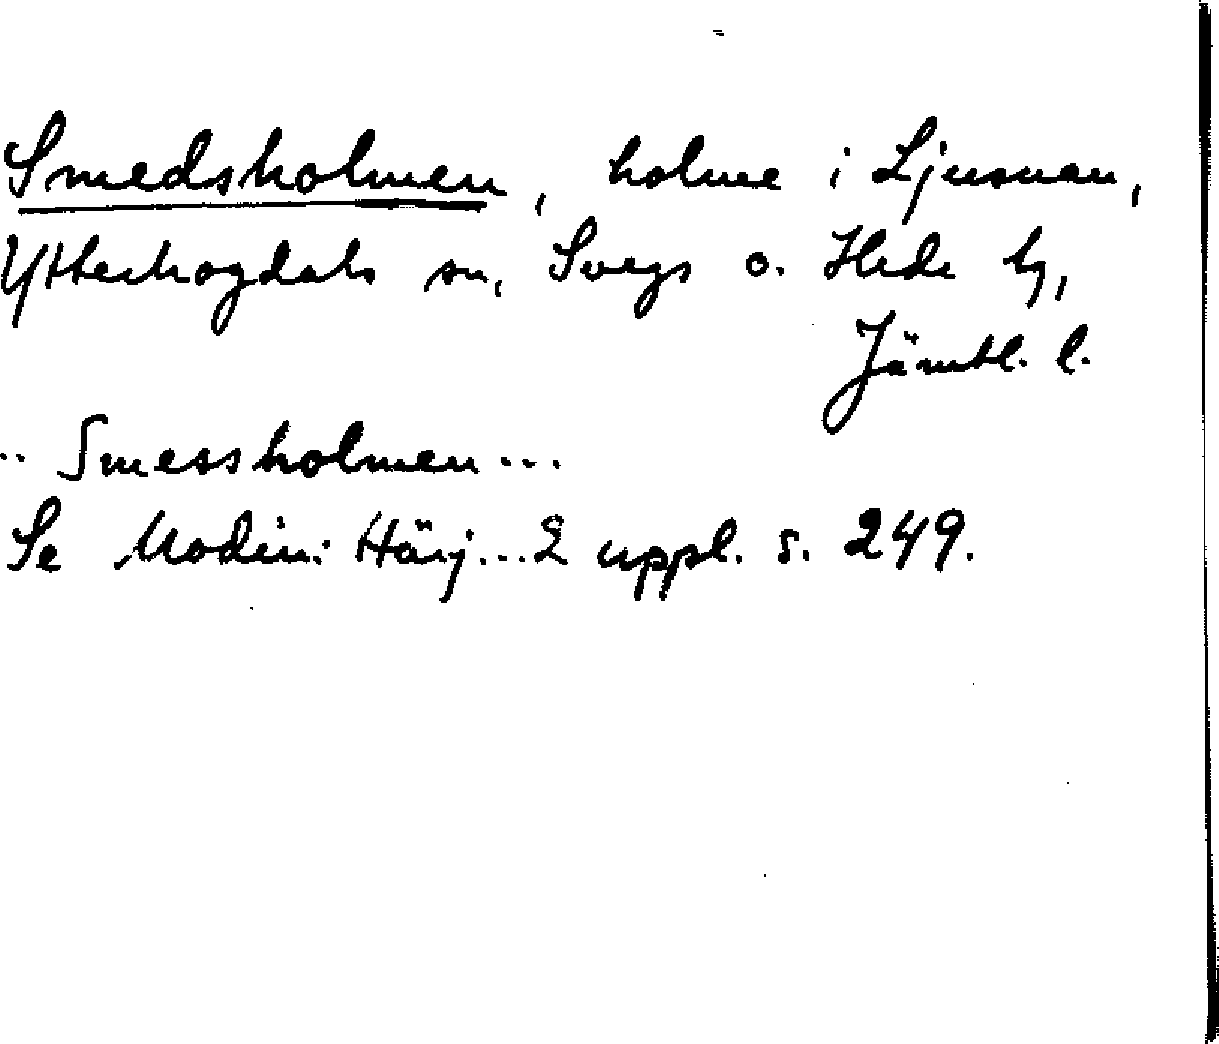 Smedsholmen, holme i Ljusnan,
Ytterhogdals sn, Svegs o. Hede tg,
Jämtl. l.
.. Smessholmen ...
Se Modin: Härj... 2 uppl. s. 249.